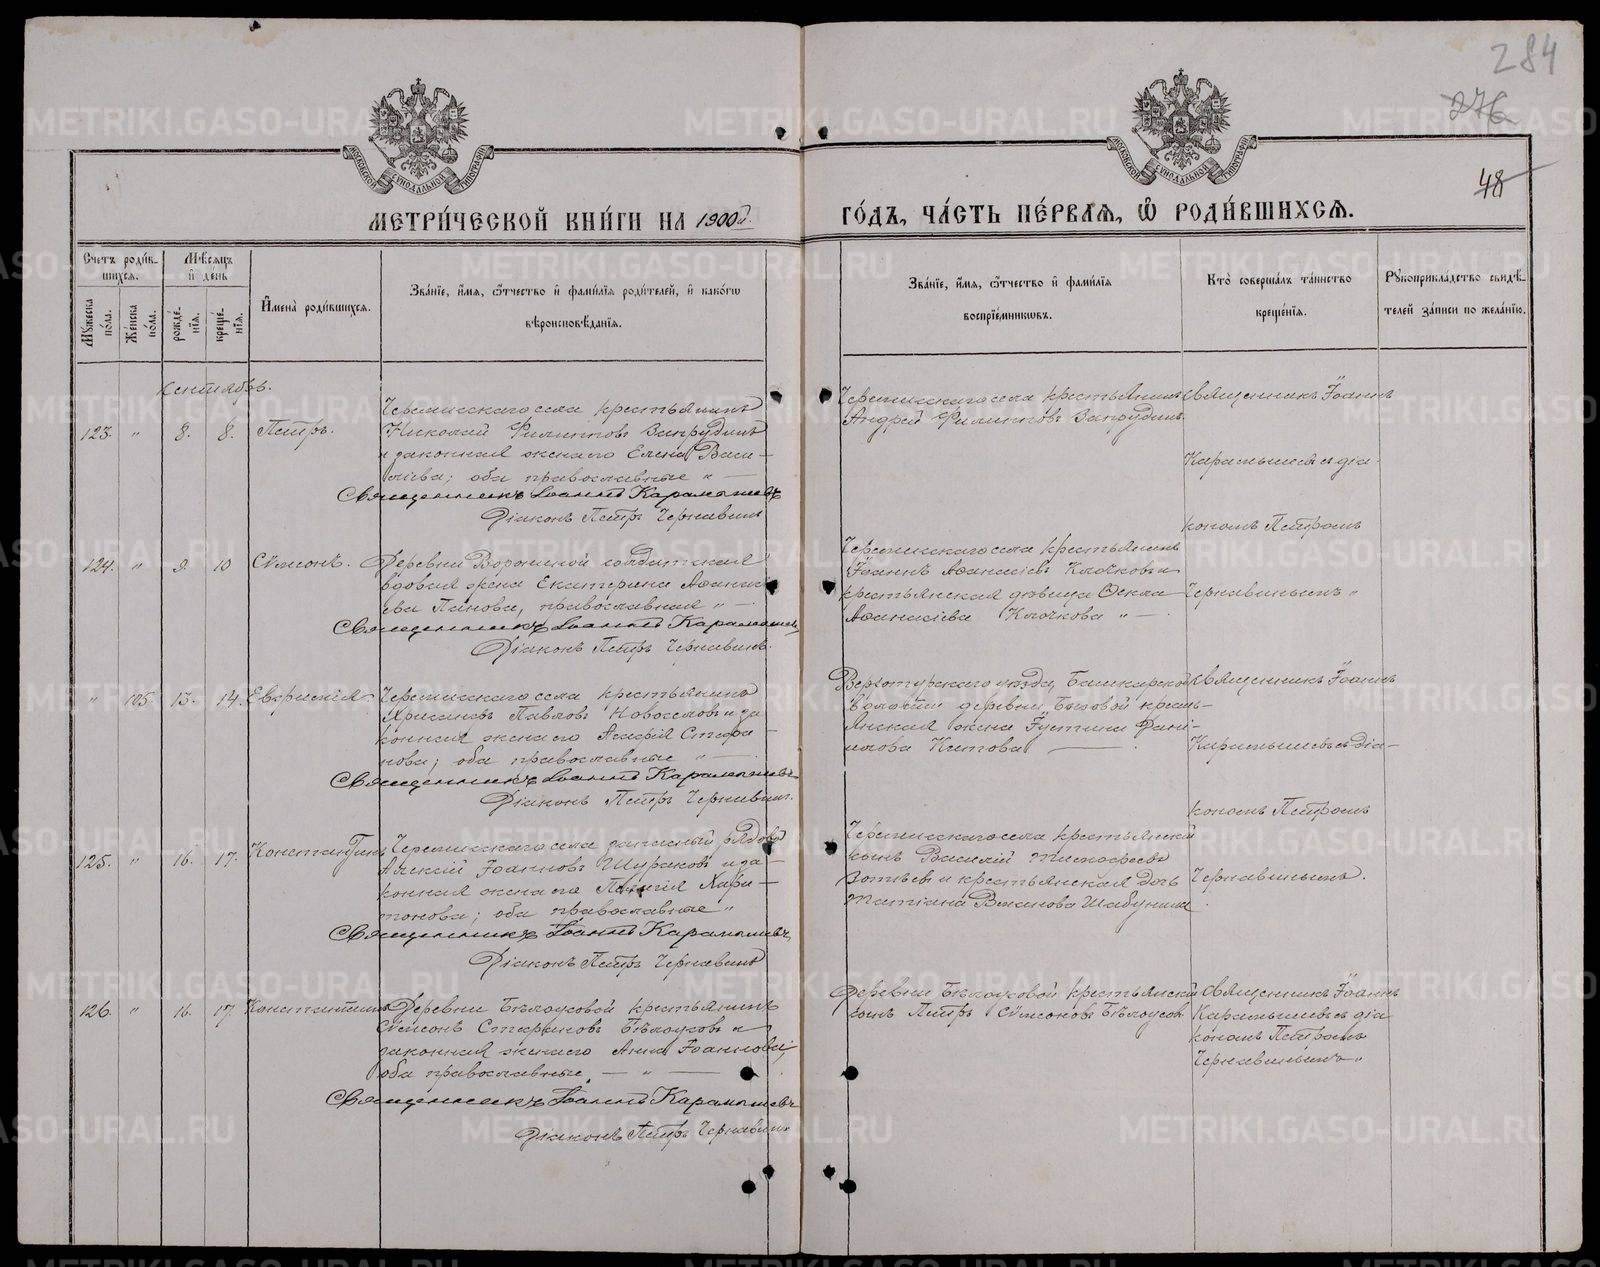 284
276
48
МОСКОВСКОЙ СѴНОДАЛЬНОЙ ТИПОГРАФІИ
МОСКОВСКОЙ СѴНОДАЛЬНОЙ ТИПОГРАФІИ
МЕТРИ́ЧЕСКОЙ КНИ́ГИ НА 1900й. ГО́ДЪ, ЧА́СТЬ ПЕ́РВАѦ, Ѽ РОДИ́ВШИХСѦ.
Счетъ роди́в-
шихсѧ.
Мѣ́сѧцъ
и҆ де́нь
Мꙋ́жеска по́ла.
Же́нска по́ла.
рожде́-нїѧ.
креще́-нїѧ.
И҆мена̀ роди́вшихсѧ.
Зва́нїе, и҆́мѧ, ѻ҆́тчество и҆ фами́лїѧ роди́телей, и҆ како́гѡ
вѣроисповѣ́данїѧ.
Зва́нїе, и҆́мѧ, ѻ҆́тчество и҆ фами́лїѧ
воспрїе́мникѡвъ.
Кто̀ соверша́лъ та́инство
креще́нїѧ.
Рꙋкоприкла́дство свидѣ́-
телей за́писи по жела́нїю.
Сентябрь.
123. " 8. 8. Петръ.
Черемисскаго села крестьянинъ
Николай Филипповъ Запрудинъ
и законная жена его Елена Васи-
льева; оба православные "
Священникъ Іоаннъ Карамышевъ
Діаконъ Петръ Чернавинъ
Черемисскаго села крестьянинъ
Андрей Филипповъ Запрудинъ
Священникъ Іоаннъ
Карамышевъ съ діа-
кономъ Петромъ
Чернавинымъ "
124. " 9. 10 Сѵмеонъ.
Деревни Ворониной солдатская
вдовая жена Екатерина Аѳанась-
ева Панова, православная "
Священникъ Іоаннъ Карамышевъ
Діаконъ Петръ Чернавинъ.
Черемисскаго села крестьянинъ
Іоаннъ Аѳанасіевъ Клочковъ и
крестьянская дѣвица Ѳекла
Аѳанасіева Клочкова "
" 105. 13. 14. Евфросинія
Черемисскаго села крестьянинъ
Павловъ Новоселовъ и за-
конная жена его Агафія Стефа-
нова; оба православные "
Священникъ Іоаннъ Карамышевъ
Діаконъ Петръ Чернавинъ.
Верхотурскаго уѣзда, Башкарской
волости деревни кресть-
янская жена Іустина Дані-
илова Китова
Священникъ Іоаннъ
Карамышевъ съ діа-
кономъ Петромъ
Чернавинымъ.
125. " 16. 17. Константинъ
Черемисскаго села запасный рядовой
Алексій Іоанновъ и за-
конная жена его Пелагія Хари-
тонова; оба православные "
Священникъ Іоаннъ Карамышевъ
Діаконъ Петръ Чернавинъ
Черемисскаго села крестьянскій
сынъ Василій Тимофеевъ
Зотьевъ и крестьянская дочь
Татіана Шабунина
126. " 16. 17. Константинъ
Деревни Бѣлоусовой крестьянинъ
Сѵмеонъ Стефановъ Бѣлоусовъ и
законная жена его Анна Іоаннова;
оба православные. — " —
Священникъ Іоаннъ Карамышевъ
Діаконъ Петръ Чернавинъ
Деревни Бѣлоусовой крестьянскій
сынъ Петръ Сѵмеоновъ Бѣлоусовъ
Священникъ Іоаннъ
Карамышевъ съ діа-
кономъ Петромъ
Чернавинымъ "
METRIKI.GASO-URAL.RU